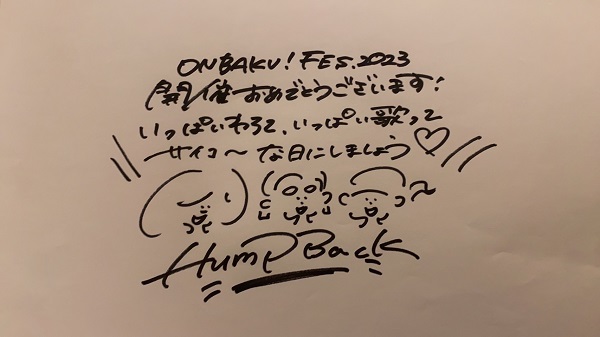 ONBAKU! FES.2023
開催おめでとうございます!
いっぱいわらって、いっぱい歌って
サイコ〜な日にしましょう♡
Hump Back